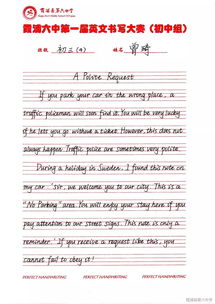 霞浦县第六中学
霞浦六中第一届英文书写大赛（初中组）
班级 初三(4) 姓名
A Polite Request
If you park your car in the wrong place, a
traffic policeman will soon find it. You will be very lucky
if he lets you go without a ticket. However, this does not
always happen. Traffic police are sometimes very polite.
During a holiday in Sweden, I found this note on
my car: "sir, we welcome you to our city. This is a
"No Parking" area. You will enjoy your stay here if you
pay attention to our street signs. This note is only a
reminder." If you receive a request like this, you
cannot fail to obey it!
PERFECT HANDWRITING PERFECT HANDWRITING PERFECT HANDWRITING